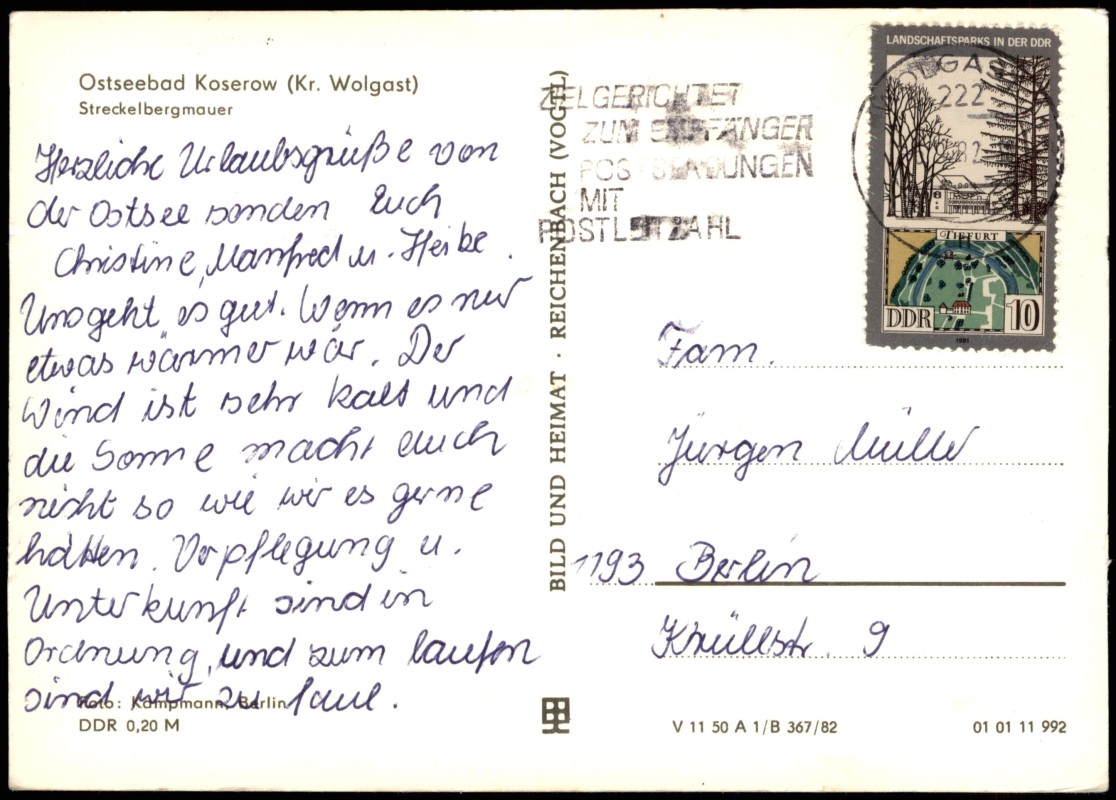 Ostseebad Koserow (Kr. Wolgast)
Streckelbergmauer
Herzliche Urlaubsgrüße von
der Ostsee senden Euch
Christine, Manfred u. Heike.
Uns geht es gut. Wenn es nur
etwas wärmer wär. Der
Wind ist sehr kalt und
die Sonne macht auch
nicht so wie wir es gerne
hätten. Verpflegung u.
Unterkunft sind in
Ordnung, und zum laufen
sind wir zu faul.
Foto: Kampmann, Berlin
DDR 0,20 M
BILD UND HEIMAT · REICHENBACH (VOGTL)
ZIELGERICHTET
ZUM EMPFÄNGER
POSTSENDUNGEN
MIT
POSTLEITZAHL
LANDSCHAFTSPARKS IN DER DDR
WOLGAST
222
TIEFURT
DDR
10
1981
Fam.
Jürgen Müller
1193 Berlin
Krüllstr. 9
V 11 50 A 1/B 367/82
01 01 11 992